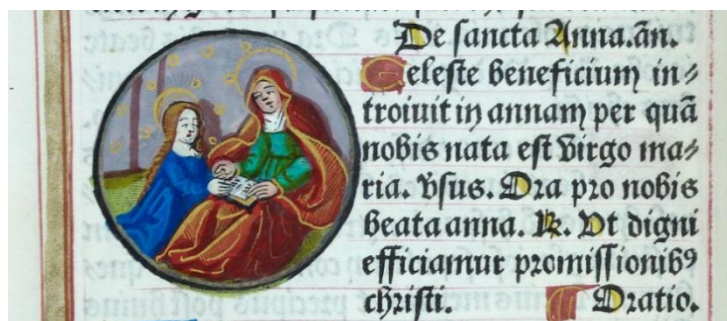 De sancta Anna.añ.
Celeste beneficium in⸗
troiuit in annam per quã
nobis nata est virgo ma⸗
ria. vſus. Ora pro nobis
beata anna. ℟. Vt digni
efficiamur promissionibꝰ
christi. Oratio.